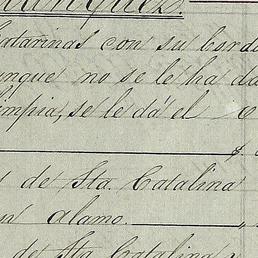 catarinas con su corda
unque no se le ha da
impia, se le dá el
$.
de Sta. Catalina
un alamo.
de Sta Catalina y